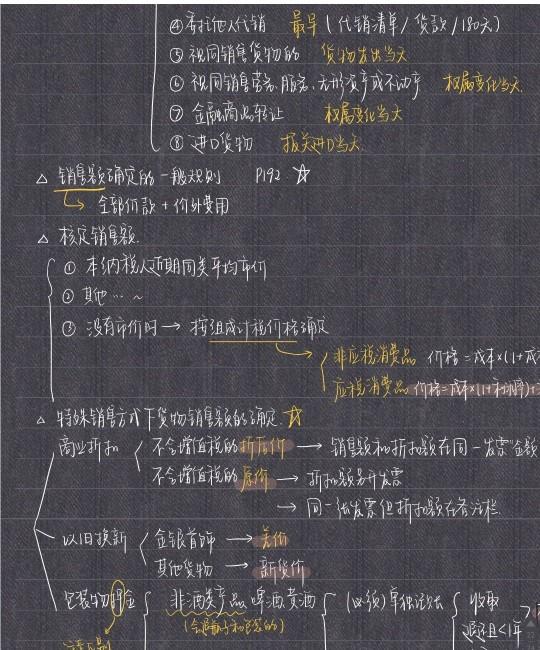 ④ 委托他人代销 最早 (代销清单 / 货款 / 180天)
⑤ 视同销售货物的 货物发出当天
⑥ 视同销售劳务、服务、无形资产或不动产 权属变化当天
⑦ 金融商品转让 权属变化当天
⑧ 进口货物 报关进口当天
△ 销售额确定的一般规则 P192 ☆
↳ 全部价款 + 价外费用
△ 核定销售额.
① 本纳税人近期同类平均市价
② 其他…~
③ 没有市价时 → 按组成计税价格确定
非应税消费品 价格=成本×(1+成
应税消费品 价格=成本×(1+利润率)+
△ 特殊销售方式下货物销售额的确定 ☆
商业折扣 不含增值税的折后价 → 销售额和折扣额在同一发票"金额
不含增值税的原价 → 折扣额另开发票
→ 同一张发票但折扣额在备注栏.
以旧换新 金银首饰 → 差价
其他货物 → 新货价
包装物押金 非酒类产品、啤酒、黄酒 (必须)单独记账 收取
逾期<1年